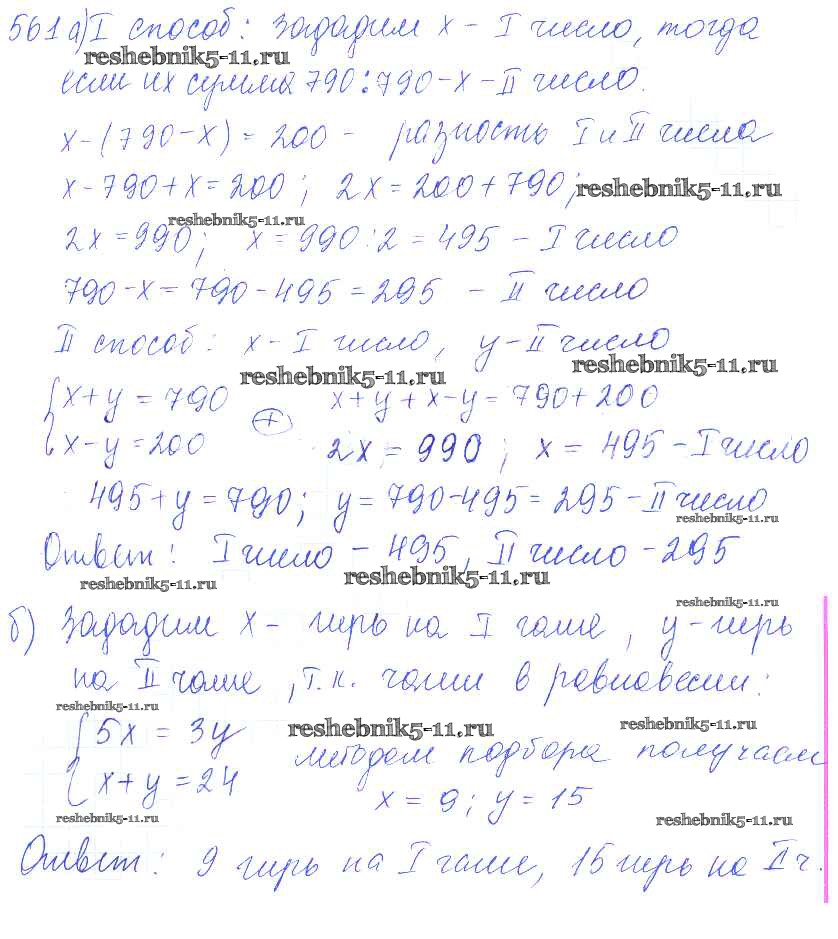 561 а) I способ: Зададим x - I число, тогда
reshebnik5-11.ru
если их сумма 790: 790 - x - II число.
x - (790 - x) = 200 - разность I и II числа
x - 790 + x = 200; 2x = 200 + 790; reshebnik5-11.ru
reshebnik5-11.ru
2x = 990; x = 990 : 2 = 495 - I число
790 - x = 790 - 495 = 295 - II число
II способ: x - I число, y - II число
reshebnik5-11.ru reshebnik5-11.ru
x + y = 790 x + y + x - y = 790 + 200
x - y = 200 + 2x = 990; x = 495 - I число
495 + y = 790; y = 790 - 495 = 295 - II число
reshebnik5-11.ru
Ответ: I число - 495, II число - 295
reshebnik5-11.ru reshebnik5-11.ru
reshebnik5-11.ru
б) Зададим x - гирь на I чаше, y - гирь
на II чаше, т.к. чаши в равновесии:
reshebnik5-11.ru
5x = 3y reshebnik5-11.ru reshebnik5-11.ru
методом подбора получаем
x + y = 24 x = 9; y = 15
reshebnik5-11.ru reshebnik5-11.ru
Ответ: 9 гирь на I чаше, 15 гирь на II ч.